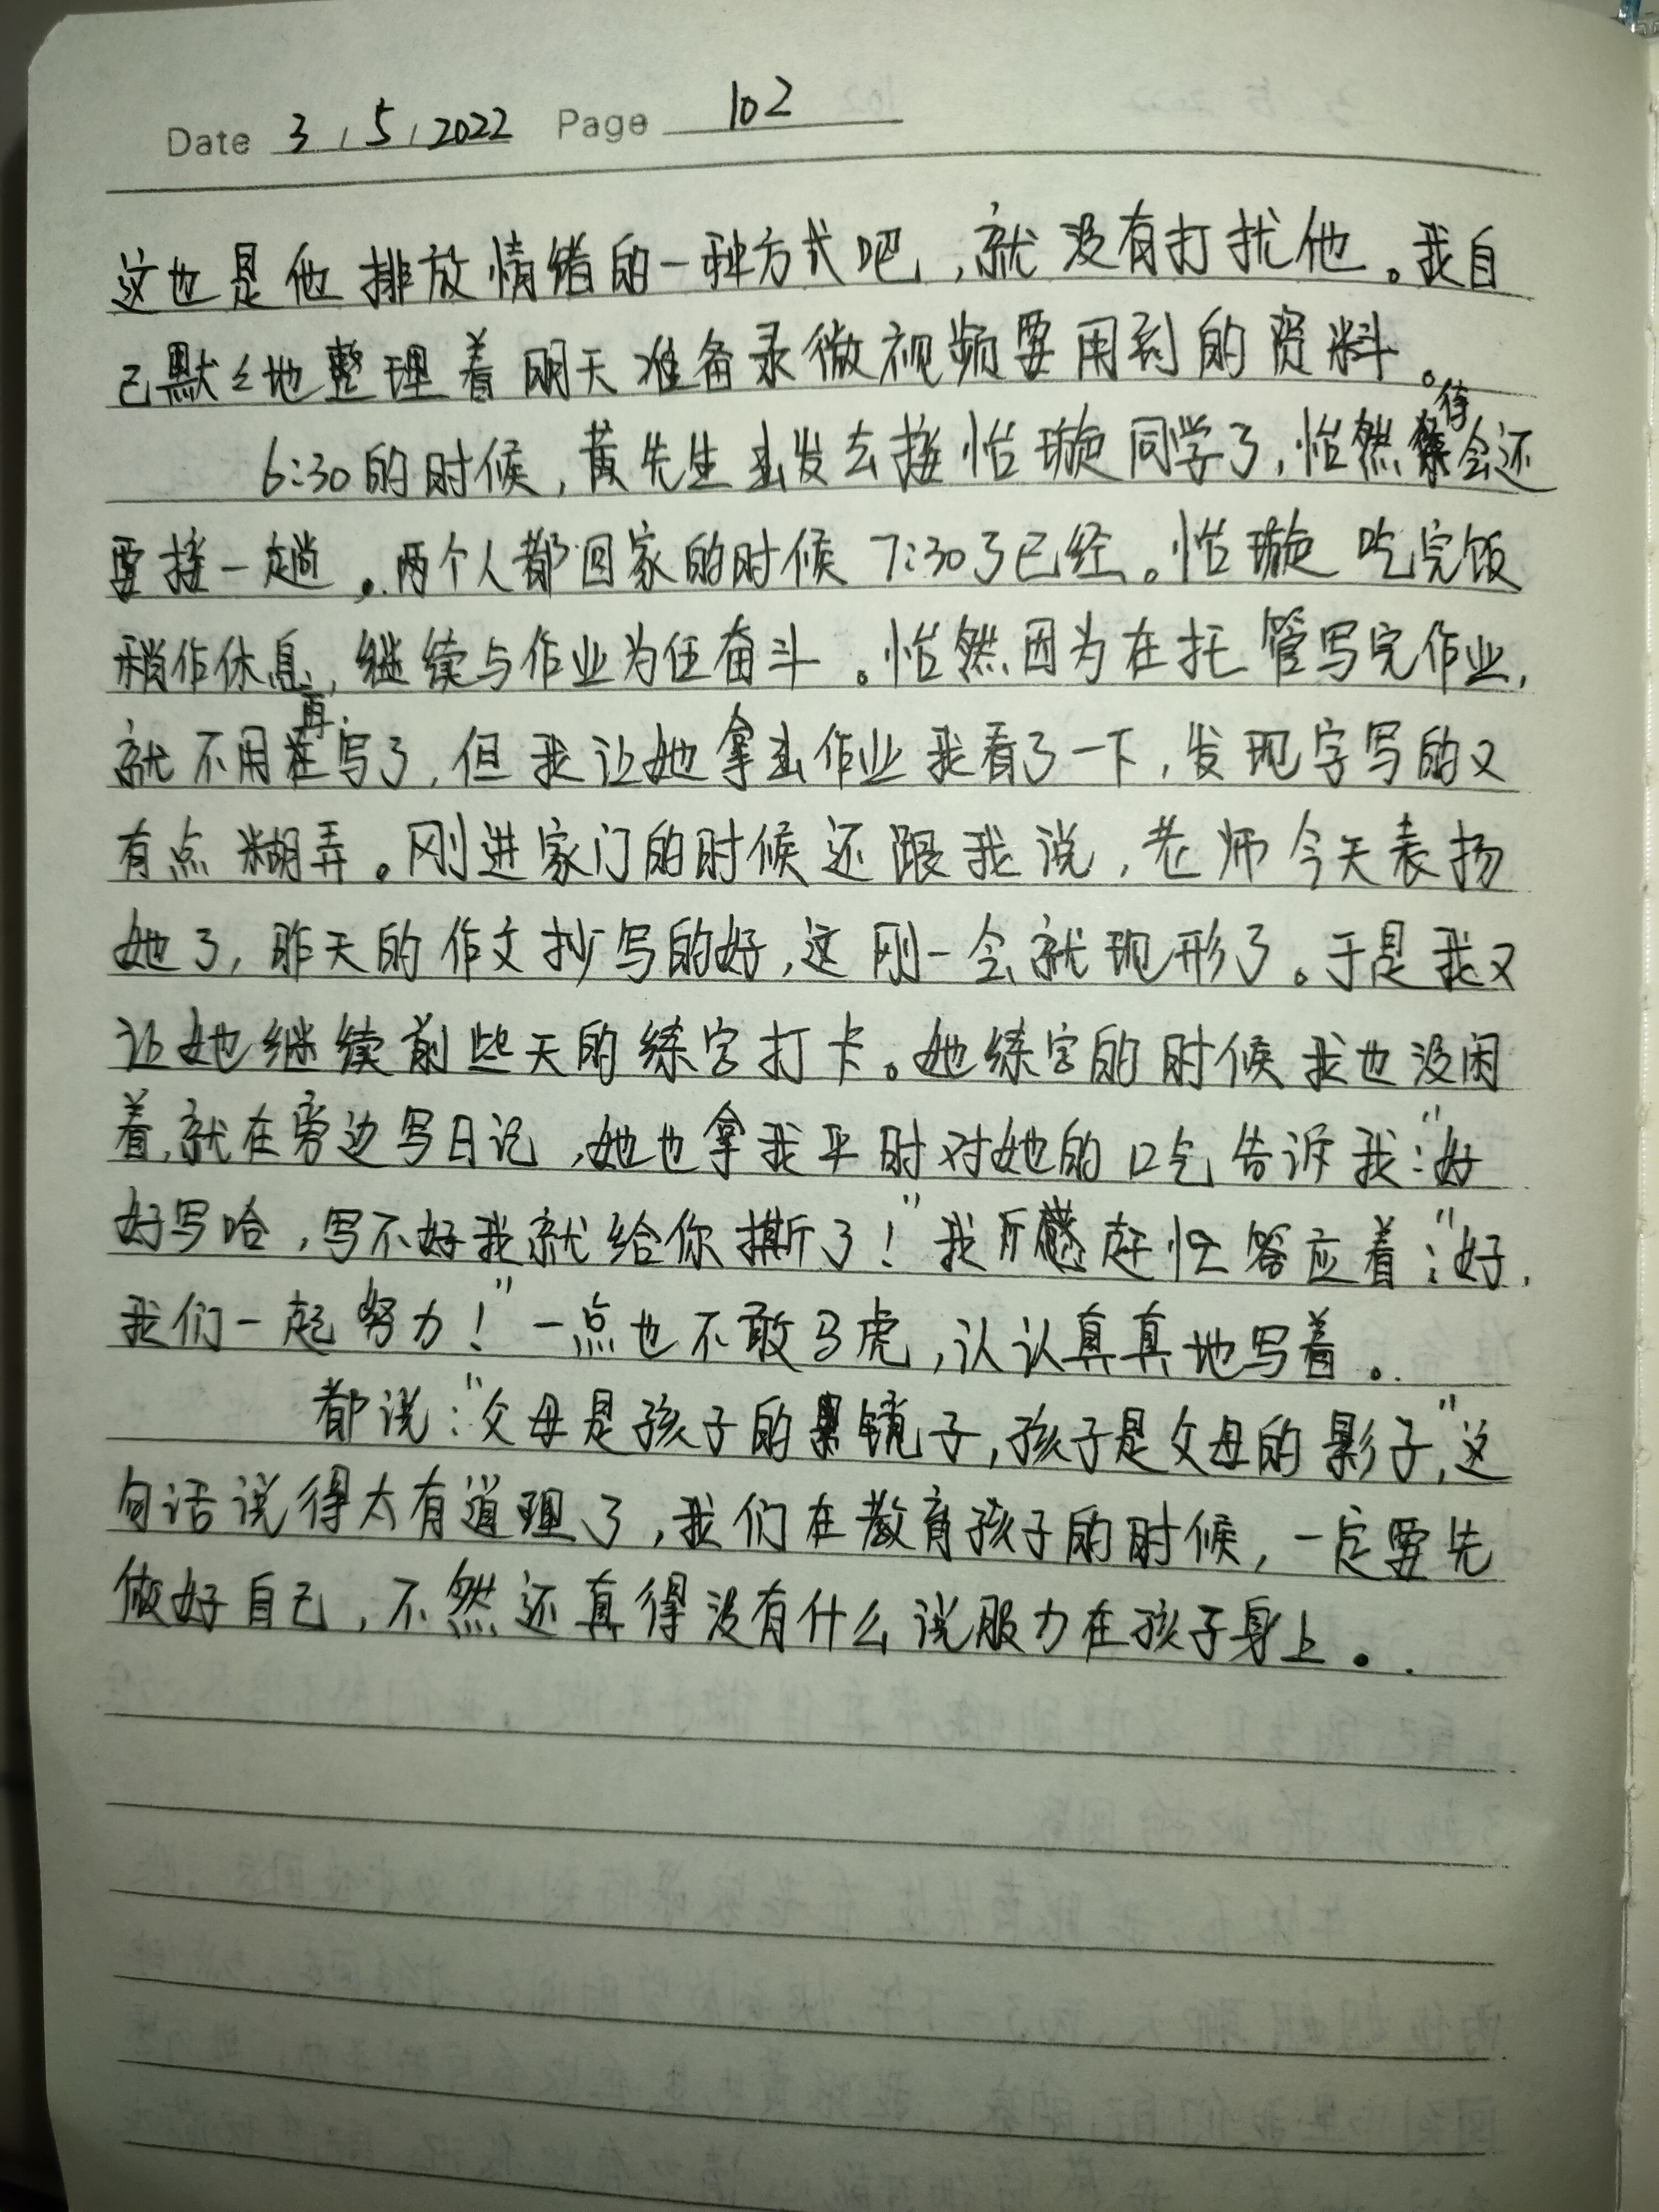 Date 3 / 5 / 2022 Page 102
这也是他排放情绪的一种方式吧，就没有打扰他。我自
己默々地整理着明天准备录微视频要用到的资料。
6:30的时候，黄先生出发去接怡璇同学了，怡然待会还
要接一趟。两个人都回家的时候7:30了已经。怡璇吃完饭
稍作休息，继续与作业为伍奋斗。怡然因为在托管写完作业，
就不用再写了，但我让她拿出作业我看了一下，发现字写的又
有点糊弄。刚进家门的时候还跟我说，老师今天表扬
她了，昨天的作文抄写的好，这刚一会就现形了。于是我又
让她继续前些天的练字打卡。她练字的时候我也没闲
着，就在旁边写日记，她也拿我平时对她的口气告诉我：“好
好写哈，写不好我就给你撕了！”我赶忙答应着：“好，
我们一起努力！”一点也不敢马虎，认认真真地写着。
都说：“父母是孩子的镜子，孩子是父母的影子”，这
句话说得太有道理了，我们在教育孩子的时候，一定要先
做好自己，不然还真得没有什么说服力在孩子身上。